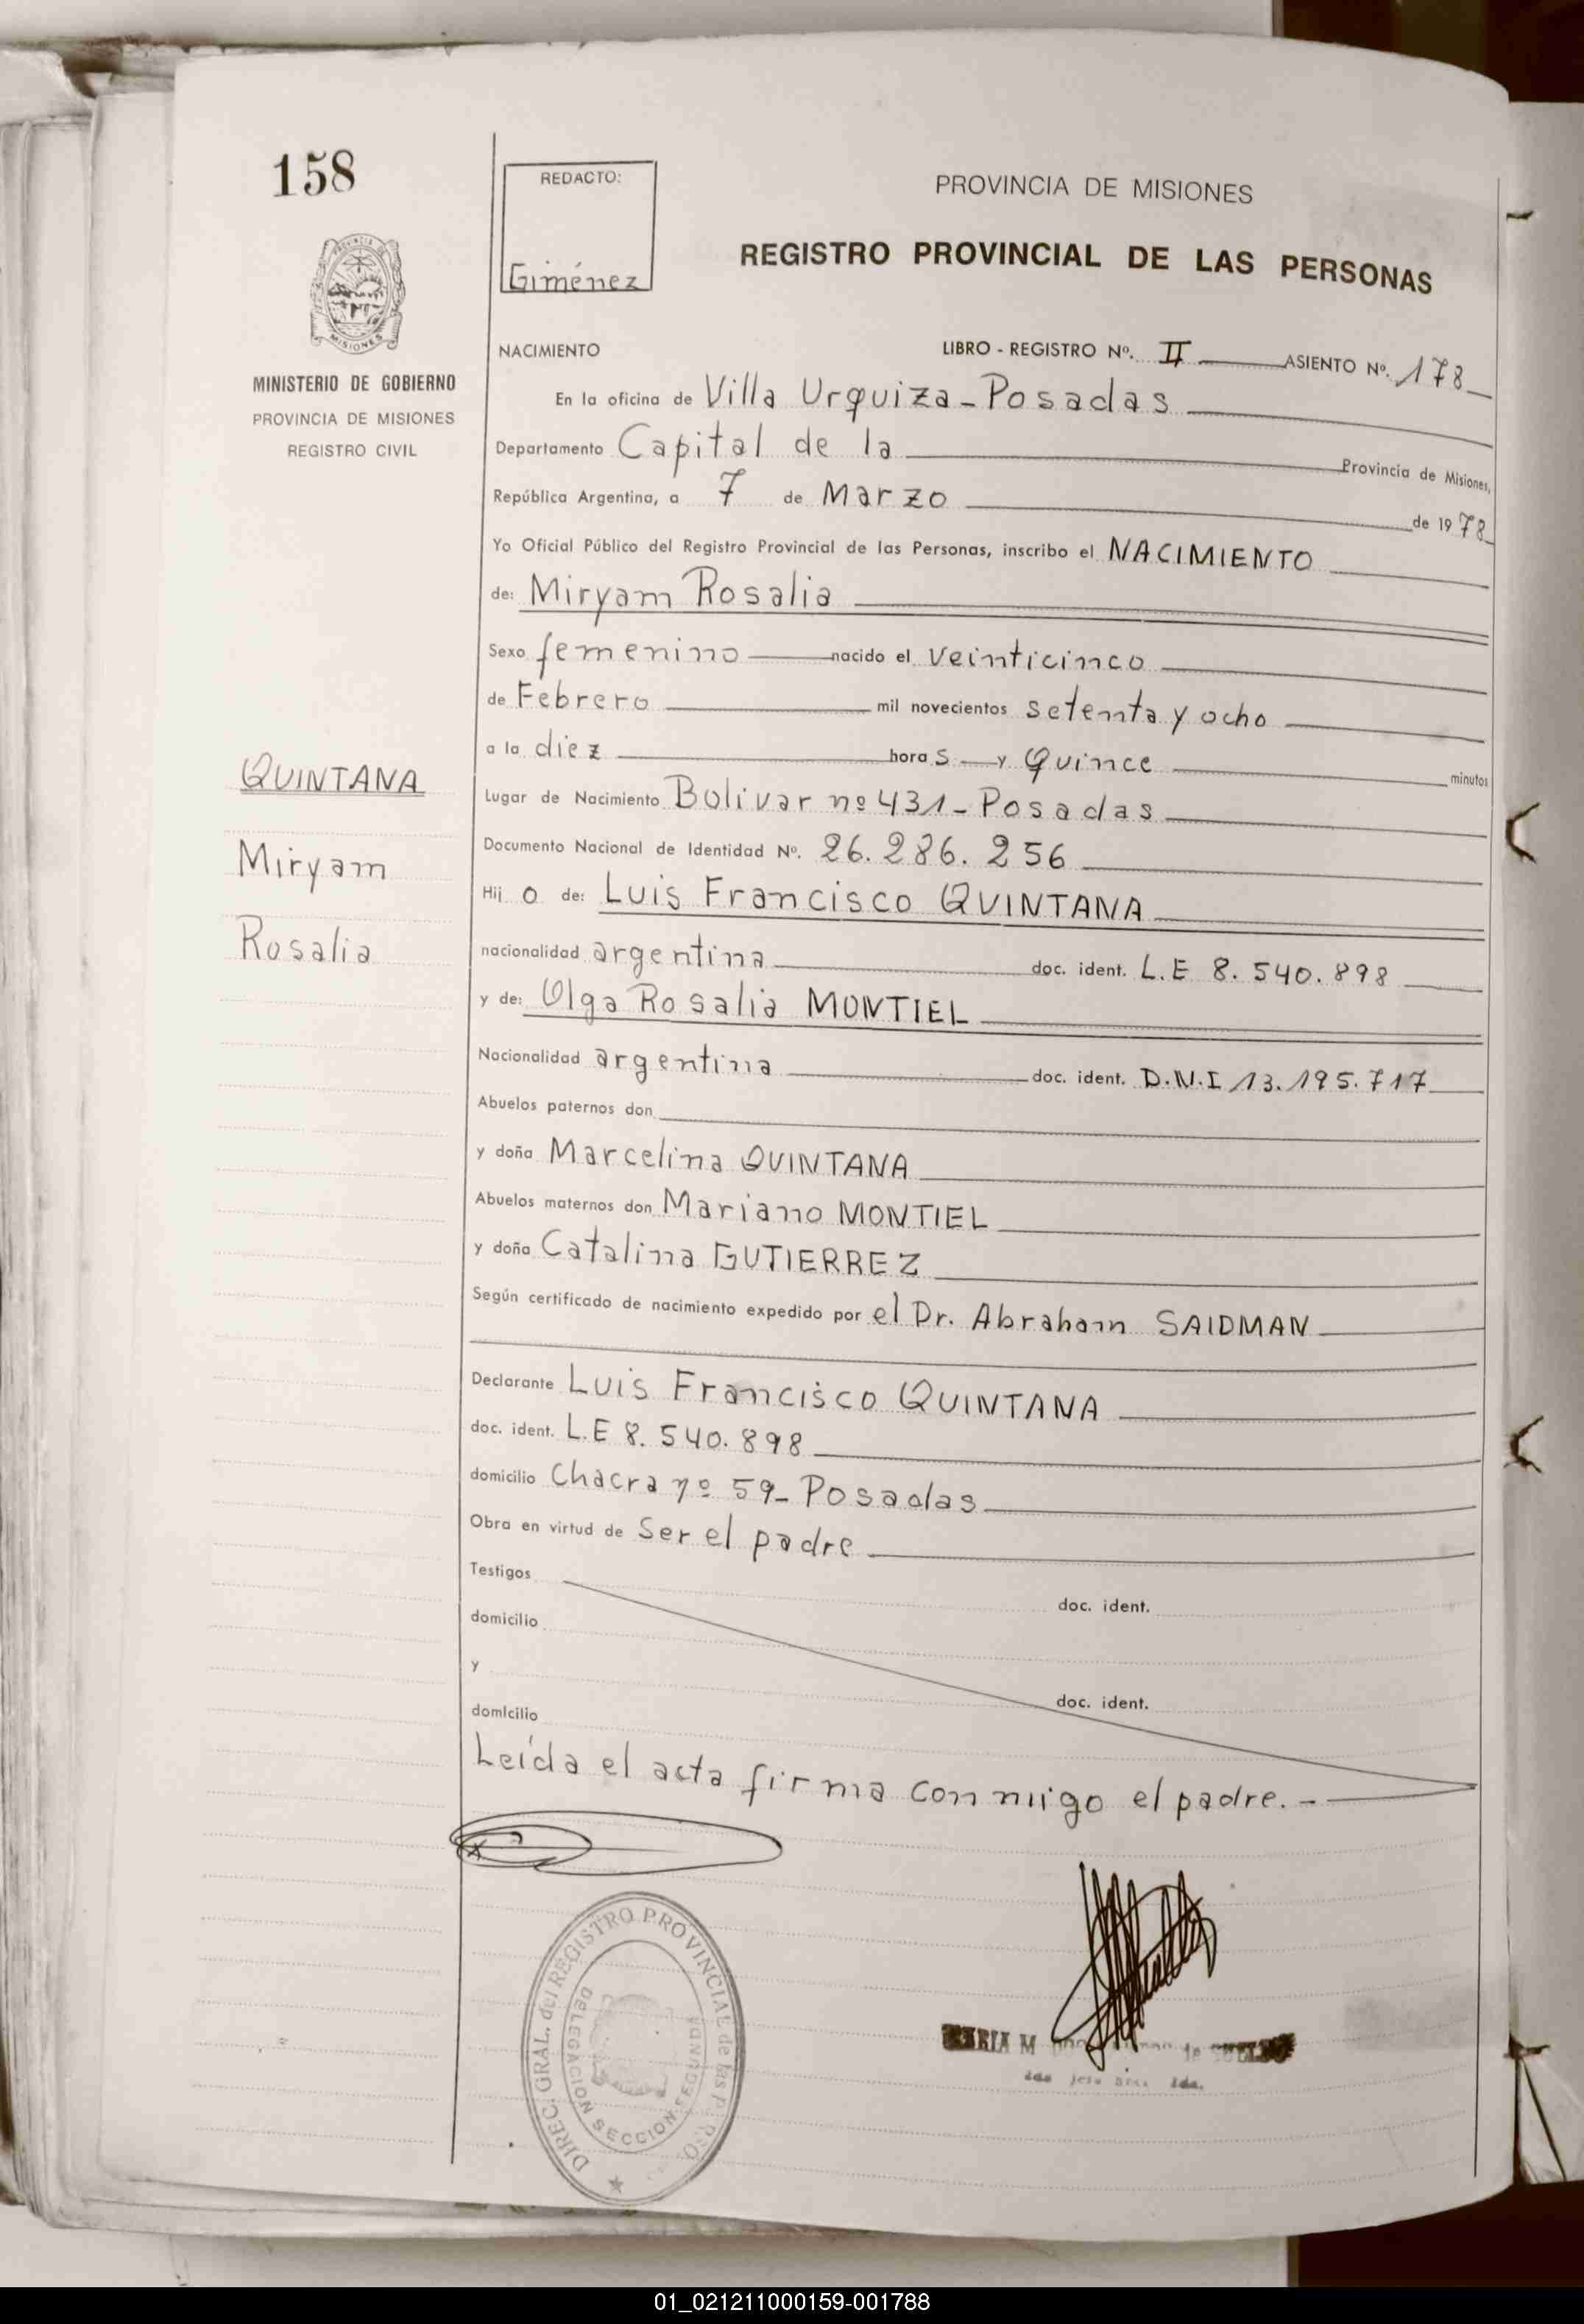 158
REDACTO:
Giménez
PROVINCIA DE MISIONES
REGISTRO PROVINCIAL DE LAS PERSONAS
MISIONES
MINISTERIO DE GOBIERNO
PROVINCIA DE MISIONES
REGISTRO CIVIL
NACIMIENTO LIBRO - REGISTRO Nº. II ASIENTO Nº. 178
En la oficina de Villa Urquiza - Posadas
Departamento Capital de la Provincia de Misiones,
República Argentina, a 7 de Marzo de 1978
Yo Oficial Público del Registro Provincial de las Personas, inscribo el NACIMIENTO
de: Miryam Rosalia
Sexo femenino nacido el veinticinco
de Febrero mil novecientos setenta y ocho
a la diez horas y Quince minutos
QUINTANA
Miryam
Rosalia
Lugar de Nacimiento Bolivar nº 431 - Posadas
Documento Nacional de Identidad Nº. 26.286.256
Hij o de: Luis Francisco QUINTANA
nacionalidad argentina doc. ident. L.E 8.540.898
y de: Olga Rosalia MONTIEL
Nacionalidad argentina doc. ident. D.N.I 13.195.717
Abuelos paternos don
y doña Marcelina QUINTANA
Abuelos maternos don Mariano MONTIEL
y doña Catalina GUTIERREZ
Según certificado de nacimiento expedido por el Dr. Abraham SAIDMAN
Declarante Luis Francisco QUINTANA
doc. ident. L.E 8.540.898
domicilio Chacra nº 59 - Posadas
Obra en virtud de Ser el padre
Testigos doc. ident.
domicilio
y doc. ident.
domicilio
Leída el acta firma conmigo el padre. -
DIREC. GRAL. del REGISTRO PROVINCIAL de las
DELEGACION SECCION SEGUNDA
MARIA M
01_021211000159-001788